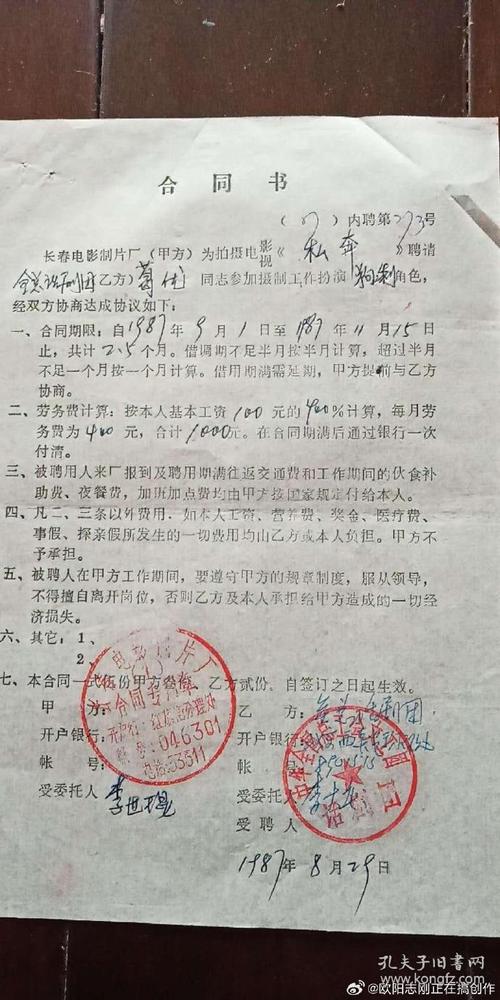 合同书
(87)内聘第273号
长春电影制片厂(甲方)为拍摄电影视《私奔》聘请
全总话剧团(乙方)葛优同志参加摄制工作扮演 角色,
经双方协商达成协议如下:
一、合同期限:自1987年9月1日至1987年11月15日
止,共计2.5个月。借调期不足半月按半月计算,超过半月
不足一个月按一个月计算。借用期满需延期,甲方提前与乙方
协商。
二、劳务费计算:按本人基本工资100元的400%计算,每月劳
务费为400元,合计1000元。在合同期满后通过银行一次
付清。
三、被聘用人来厂报到及聘用期满往返交通费和工作期间的伙食补
助费、夜餐费,加班加点费均由甲方按国家规定付给本人。
四、凡二、三条以外费用,如本人工资、营养费、奖金、医疗费、
事假、探亲假所发生的一切费用均由乙方或本人负担。甲方不
予承担。
五、被聘人在甲方工作期间,要遵守甲方的规章制度,服从领导,
不得擅自离开岗位,否则乙方及本人承担给甲方造成的一切经
济损失。
六、其它:1、
2、
七、本合同一式伍份甲方叁份,乙方贰份,自签订之日起生效。
甲方:
乙方:全总话剧团
开户银行:
开户银行:
帐号:
帐号:
受委托人
李世
受委托人
受聘人
电影制片厂
合同专用章
046301
电话:53511
中华全国总工会
话剧团
1987年8月29日
孔夫子旧书网
@欧阳志刚正在搞创作